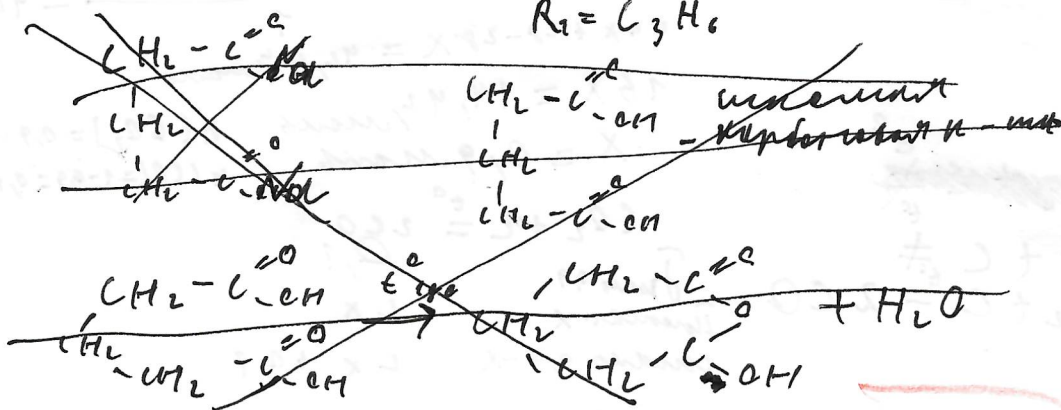 R₁ = C₃H₆
CH₂ - C =O
CH₂
CH₂ - C =O
CH₂ - C =O - OH
CH₂
CH₂ - C =O - OH
искомая
карбоновая к-та
CH₂ - C =O - OH
CH₂
CH₂ - C =O - OH
t° →
CH₂ - C =O
CH₂ O
CH₂ - C OH
+ H₂O